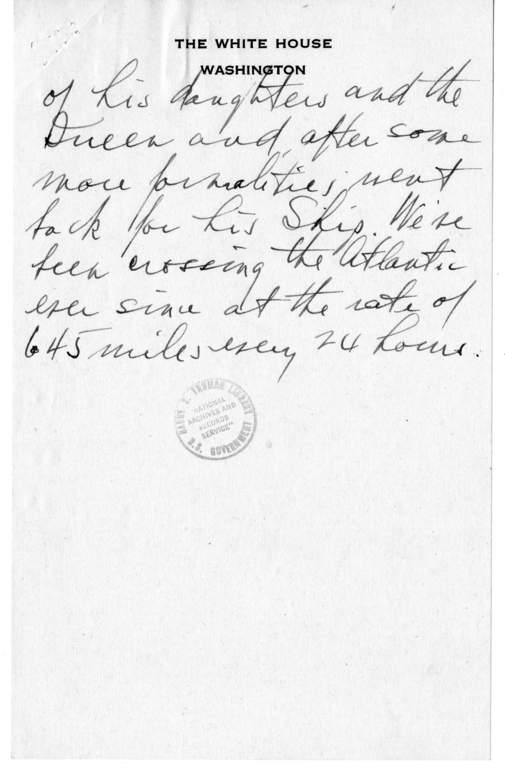 THE WHITE HOUSE
WASHINGTON
of his daughters and the
Queen and, after some
more formalities, went
back for his Ship. We've
been crossing the Atlantic
ever since at the rate of
645 miles every 24 hours.
HARRY S. TRUMAN LIBRARY
NATIONAL
ARCHIVES AND
RECORDS
SERVICE
U.S. GOVERNMENT